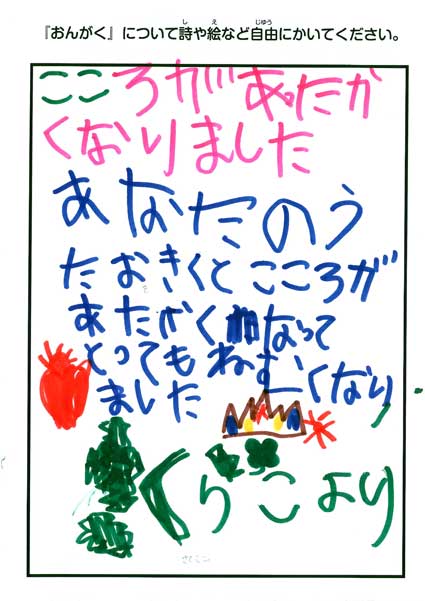 『おんがく』について詩や絵など自由にかいてください。
こころがあったか
くなりました
あなたのう
たおきくとこころが
あたがくなって
とってもねむくなり
ました
くらこより